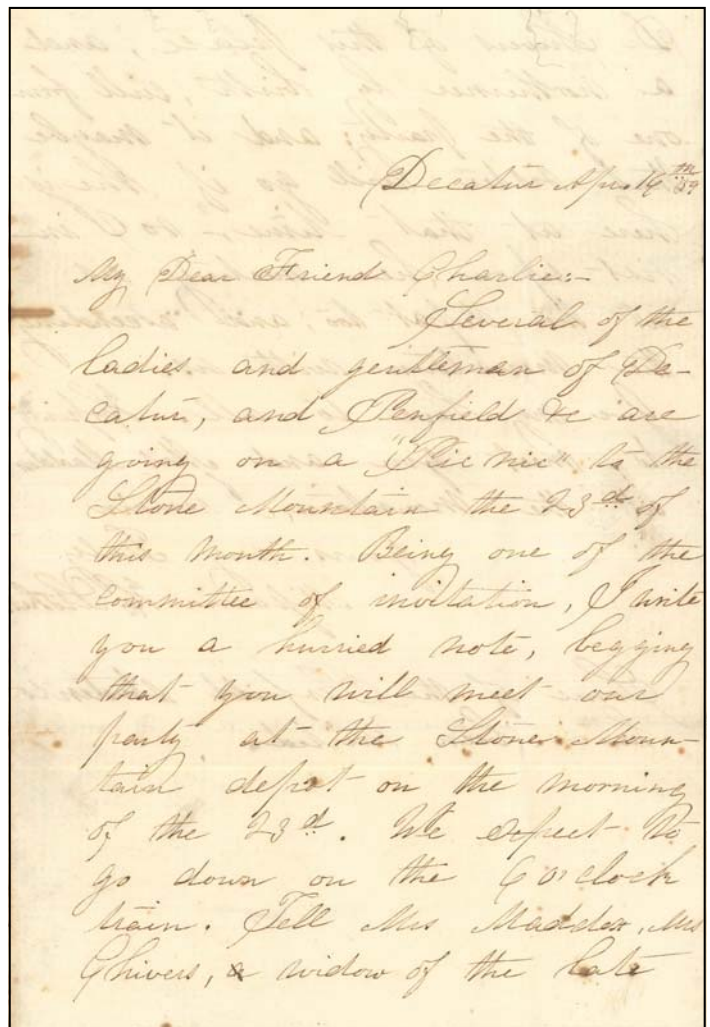 Decatur Apr. 14th /59
My Dear Friend Charlie:-
Several of the
ladies and gentleman of De-
catur, and Penfield &c are
going on a "Pic nic" to the
Stone Mountain the 23d of
this month. Being one of the
committee of invitation, I write
you a hurried note, begging
that you will meet our
party at the Stone Moun-
tain depot on the morning
of the 23d. We expect to
go down on the 6 o'clock
train. Tell Mrs Maddox, Mrs
Chivers, a widow of the late